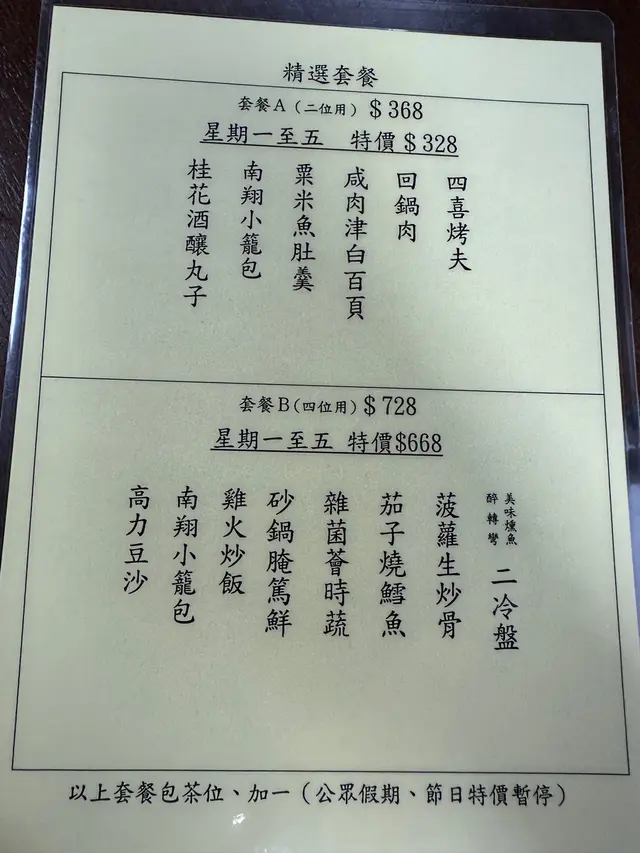 精選套餐
套餐A（二位用）$368
星期一至五 特價$328
四喜烤夫
回鍋肉
咸肉津白百頁
粟米魚肚羹
南翔小籠包
桂花酒釀丸子
套餐B（四位用）$728
星期一至五 特價$668
美味燻魚
醉轉彎
二冷盤
菠蘿生炒骨
茄子燒鱈魚
雜菌薈時蔬
砂鍋腌篤鮮
雞火炒飯
南翔小籠包
高力豆沙
以上套餐包茶位、加一（公眾假期、節日特價暫停）